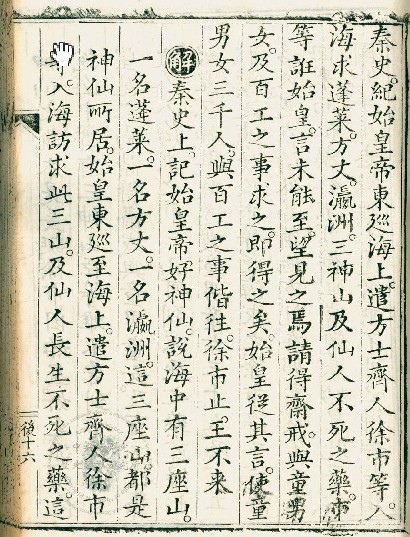 秦史。紀始皇帝東廵海上。遣方士齊人徐市等。入
海求蓬萊。方丈。瀛洲。三神山及仙人不死之藥。市
等誑始皇。言未能至。望見之焉。請得齋戒。與童男
女。及百工之事求之。即得之矣。始皇從其言。使童
男女三千人。與百工之事偕往。徐市止。王不來
解 秦史上記始皇帝好神仙。說海中有三座山。
一名蓬萊。一名方丈。一名瀛洲。這三座山。都是
神仙所居。始皇東廵至海上。遣方士齊人徐市
入海訪求此三山。及仙人長生不死之藥。這
後十六